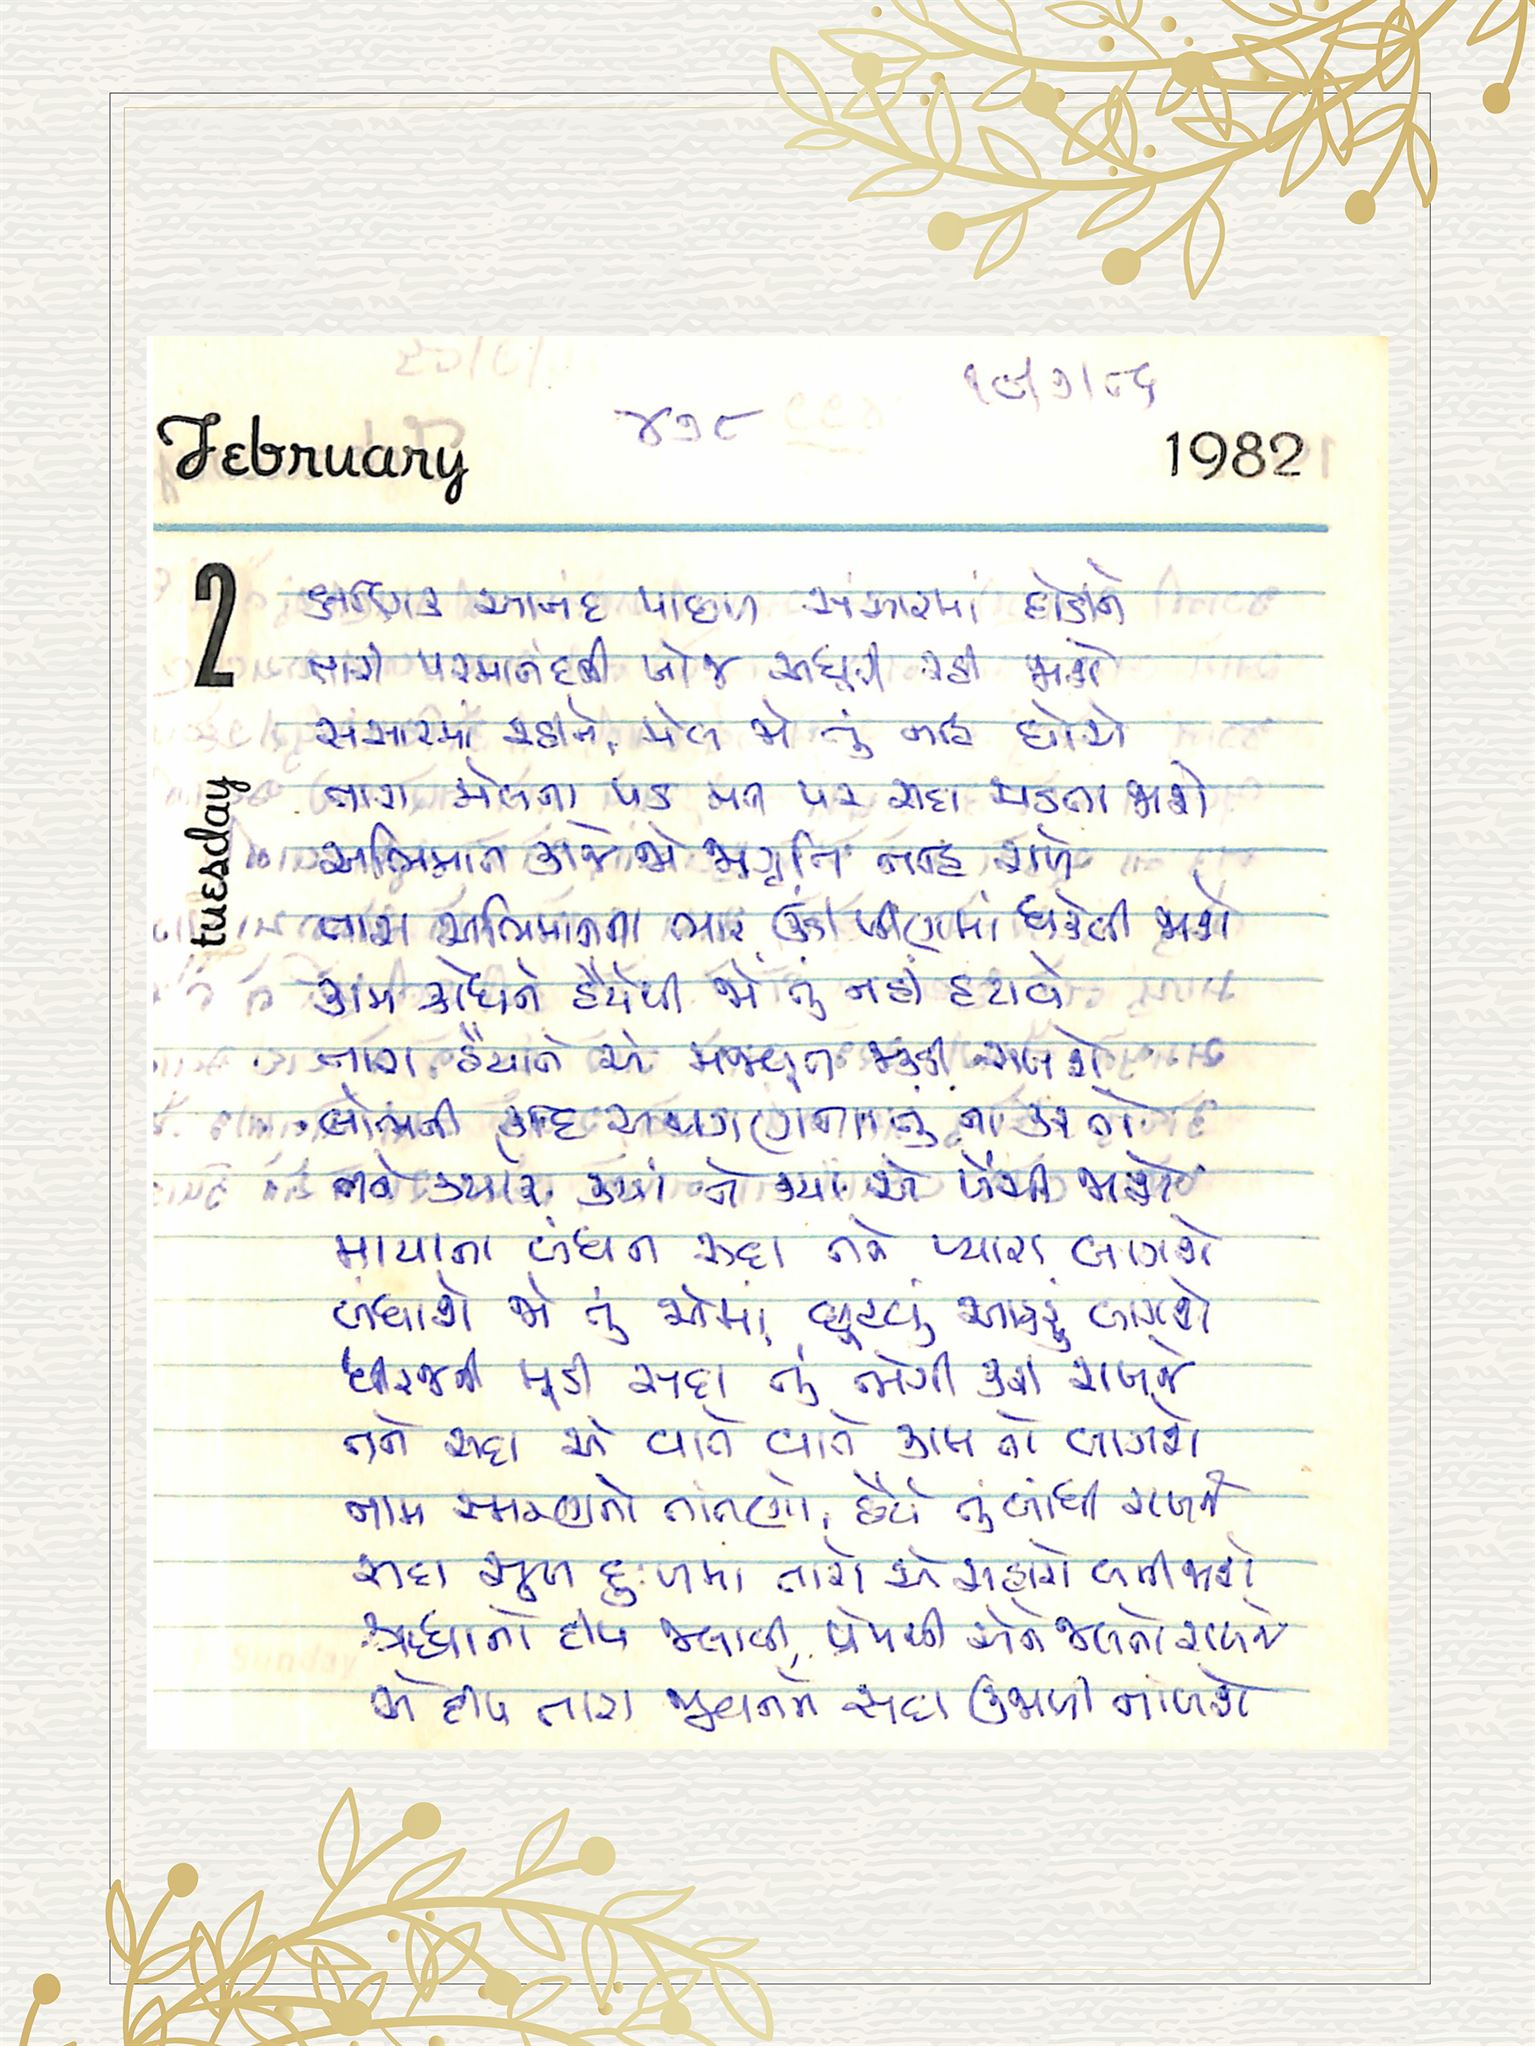 ૧૮/૭/૮૬
૪૭૮
February 1982
2
Tuesday
ક્ષણિક આનંદ પાછળ સંસારમાં દોડીને
તારી પરમાનંદની ખોજ અધૂરી રહી જાશે
સંસારમાં રહીને, મેલ જો તું નહિ ધોશે
તારા મેલના પડ મન પર સદા ચડતા જાશે
અભિમાન કાજે જો જાગૃતિ નહિ રાખે
તારા અભિમાનના ભાર ઊંડી ખીણમાં ધકેલી જાશે
કામ ક્રોધને હૈયેથી જો તું નહીં હટાવે
તારા હૈયાને એ મજબૂત જકડી રાખશે
લોભની કદિ અવગણના તું ના કરતો
તને ક્યારે ક્યાં ને ક્યાં એ ખેંચી જાશે
માયાના બંધન સદા તને પ્યારા લાગશે
બંધાશે જો તું એમાં, છૂટવું આકરું લાગશે
ધીરજની મૂડી સદા તું ભેગી કરી રાખજે
તને સદા એ વાતે વાતે કામ તો લાગશે
નામ સ્મરણનો તાંતણો, હૈયે તું બાંધી રાખજે
સદા સુખ દુઃખમાં તારો એ સહારો બની જાશે
શ્રદ્ધાનો દીપ જલાવી, પ્રેમથી એને જલતો રાખજે
એ દીપ તારા જીવનને સદા ઉજાળી નાખશે